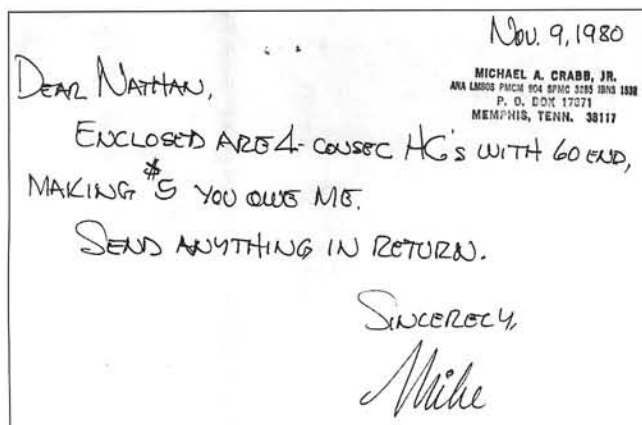 Nov. 9, 1980
MICHAEL A. CRABB, JR.
ANA LM808 PMCM 904 SPMC 3285 IBNS 1538
P. O. BOX 17871
MEMPHIS, TENN. 38117
DEAR NATHAN,
ENCLOSED ARE 4- CONSEC HG'S WITH 60 END,
MAKING $5 YOU OWE ME.
SEND ANYTHING IN RETURN.
SINCERELY,
Mike